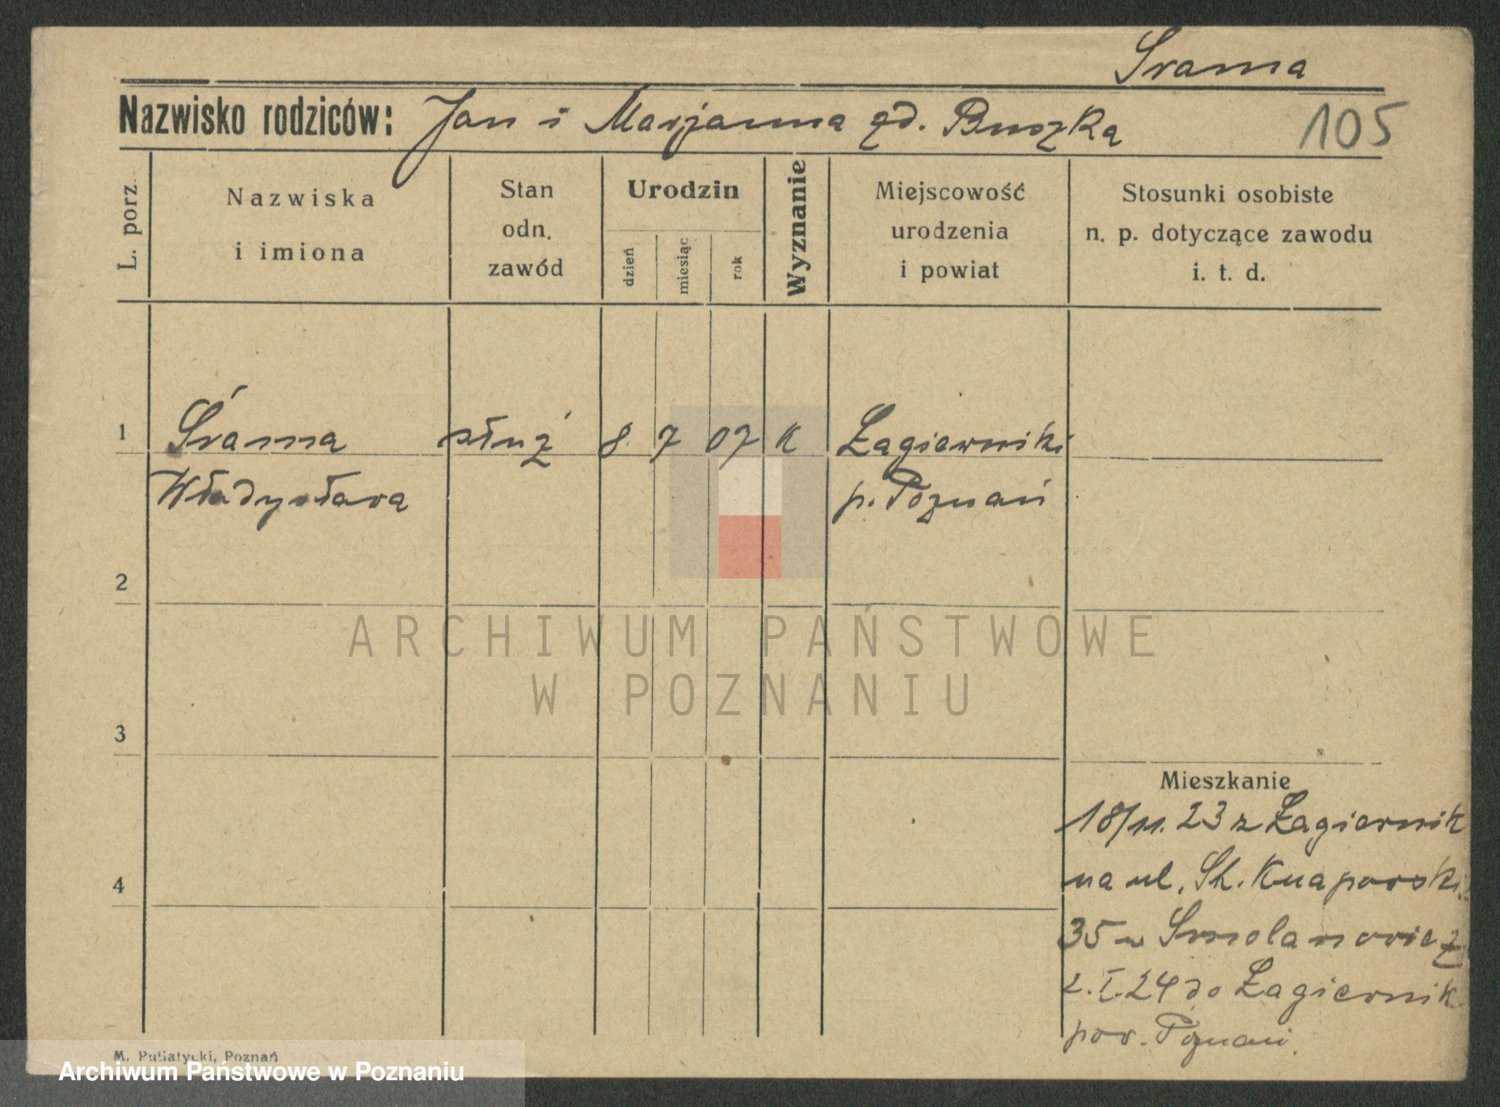 Srama
Nazwisko rodziców: Jan i Marjanna zd. Buszka
105
L. porz.
Nazwiska
i imiona
Stan
odn.
zawód
Urodzin
dzień
miesiąc
rok
Wyznanie
Miejscowość
urodzenia
i powiat
Stosunki osobiste
n. p. dotyczące zawodu
i. t. d.
1 Śrama służ 8 7 07 K Łagiewniki
Władysława p. Poznań
2
ARCHIWUM PAŃSTWOWE
W POZNANIU
3
Mieszkanie
18/11. 23 z Łagiewnik
4
na ul. St. Knapowski
35 u Smolanowicz
2. I. 24 do Łagiewnik
pow. Poznań
M. Putiatycki, Poznań
Archiwum Państwowe w Poznaniu